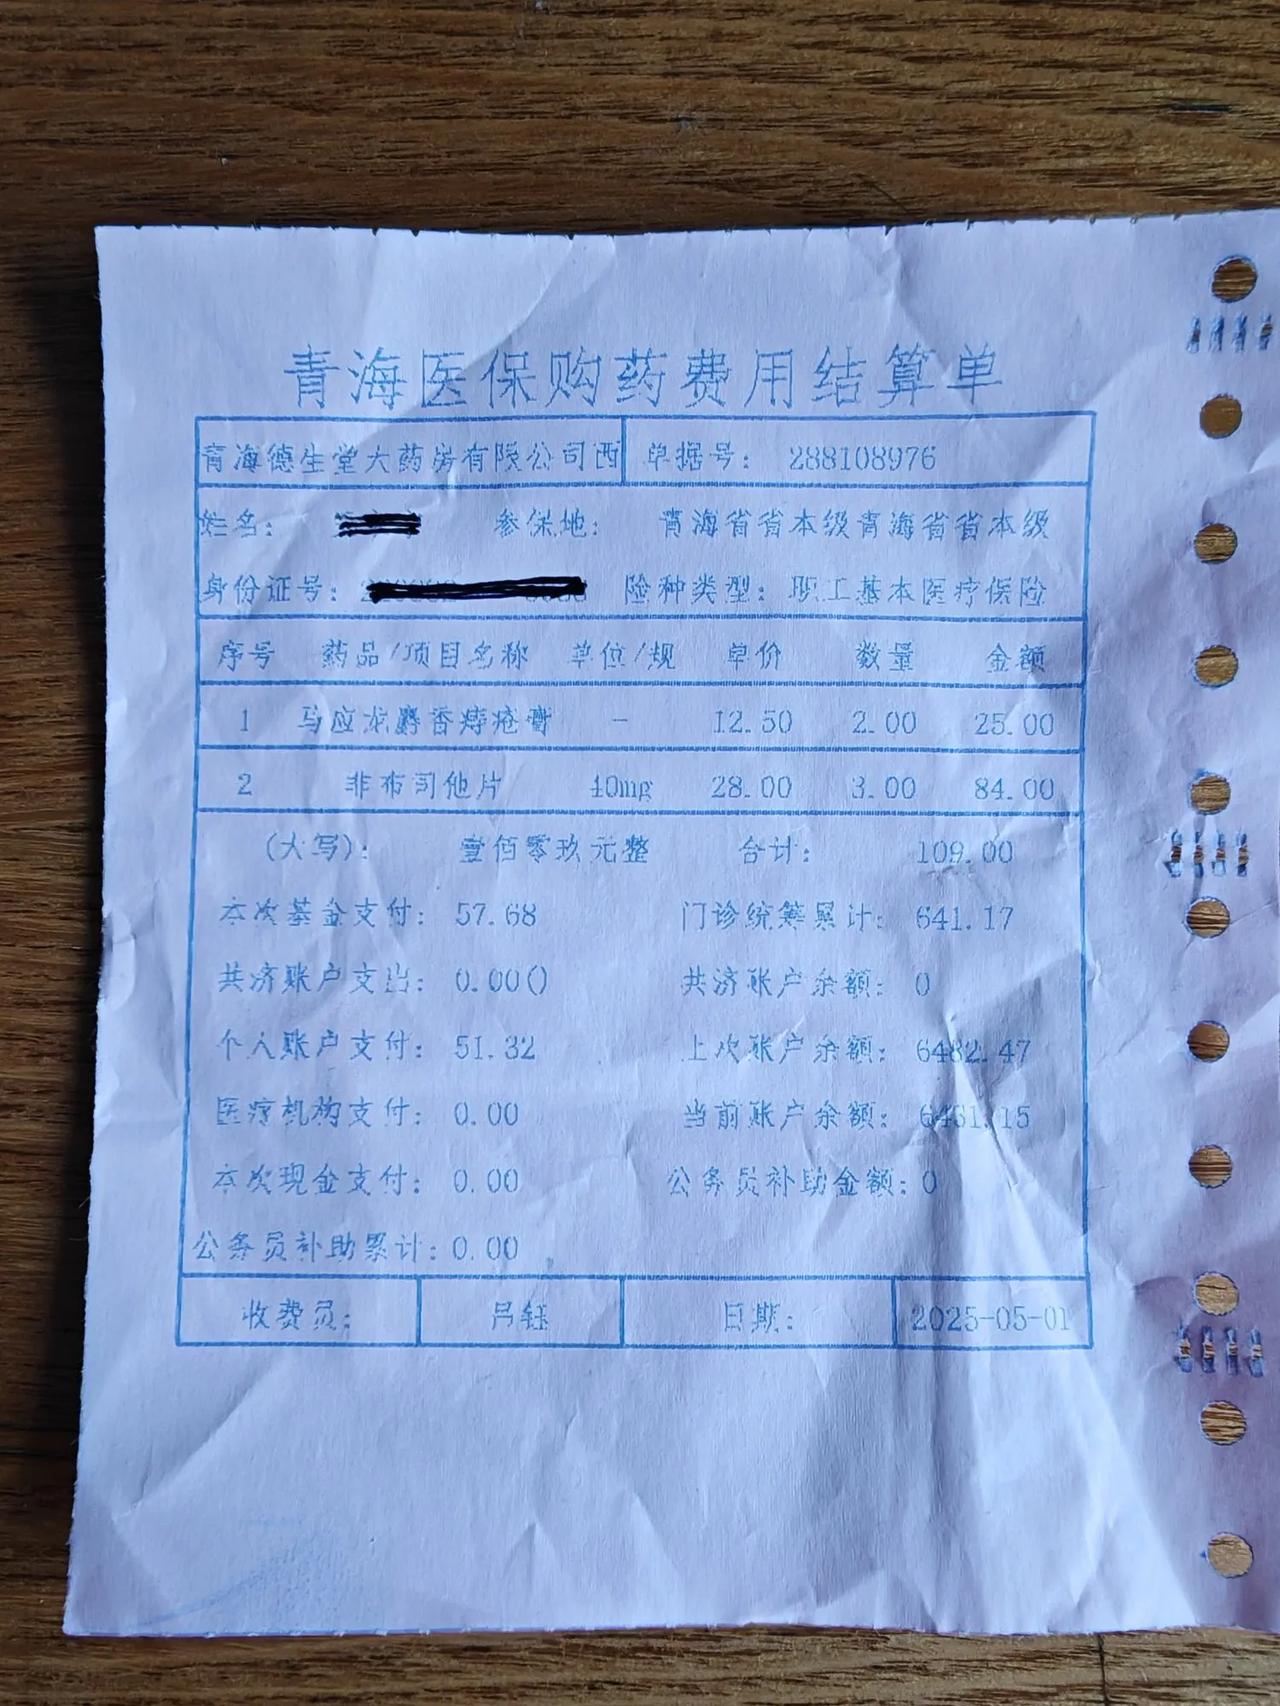 青海医保购药费用结算单
青海德生堂大药房有限公司西 单据号: 288108976
姓名: 参保地: 青海省省本级青海省省本级
身份证号: 险种类型: 职工基本医疗保险
序号 药品/项目名称 单位/规 单价 数量 金额
1 马应龙麝香痔疮膏 - 12.50 2.00 25.00
2 非布司他片 40mg 28.00 3.00 84.00
(大写): 壹佰零玖元整 合计: 109.00
本次基金支付: 57.68 门诊统筹累计: 641.17
共济账户支出: 0.00() 共济账户余额: 0
个人账户支付: 51.32 上次账户余额: 6482.47
医疗机构支付: 0.00 当前账户余额: 6431.15
本次现金支付: 0.00 公务员补助金额: 0
公务员补助累计: 0.00
收费员: 吕钰 日期: 2025-05-01